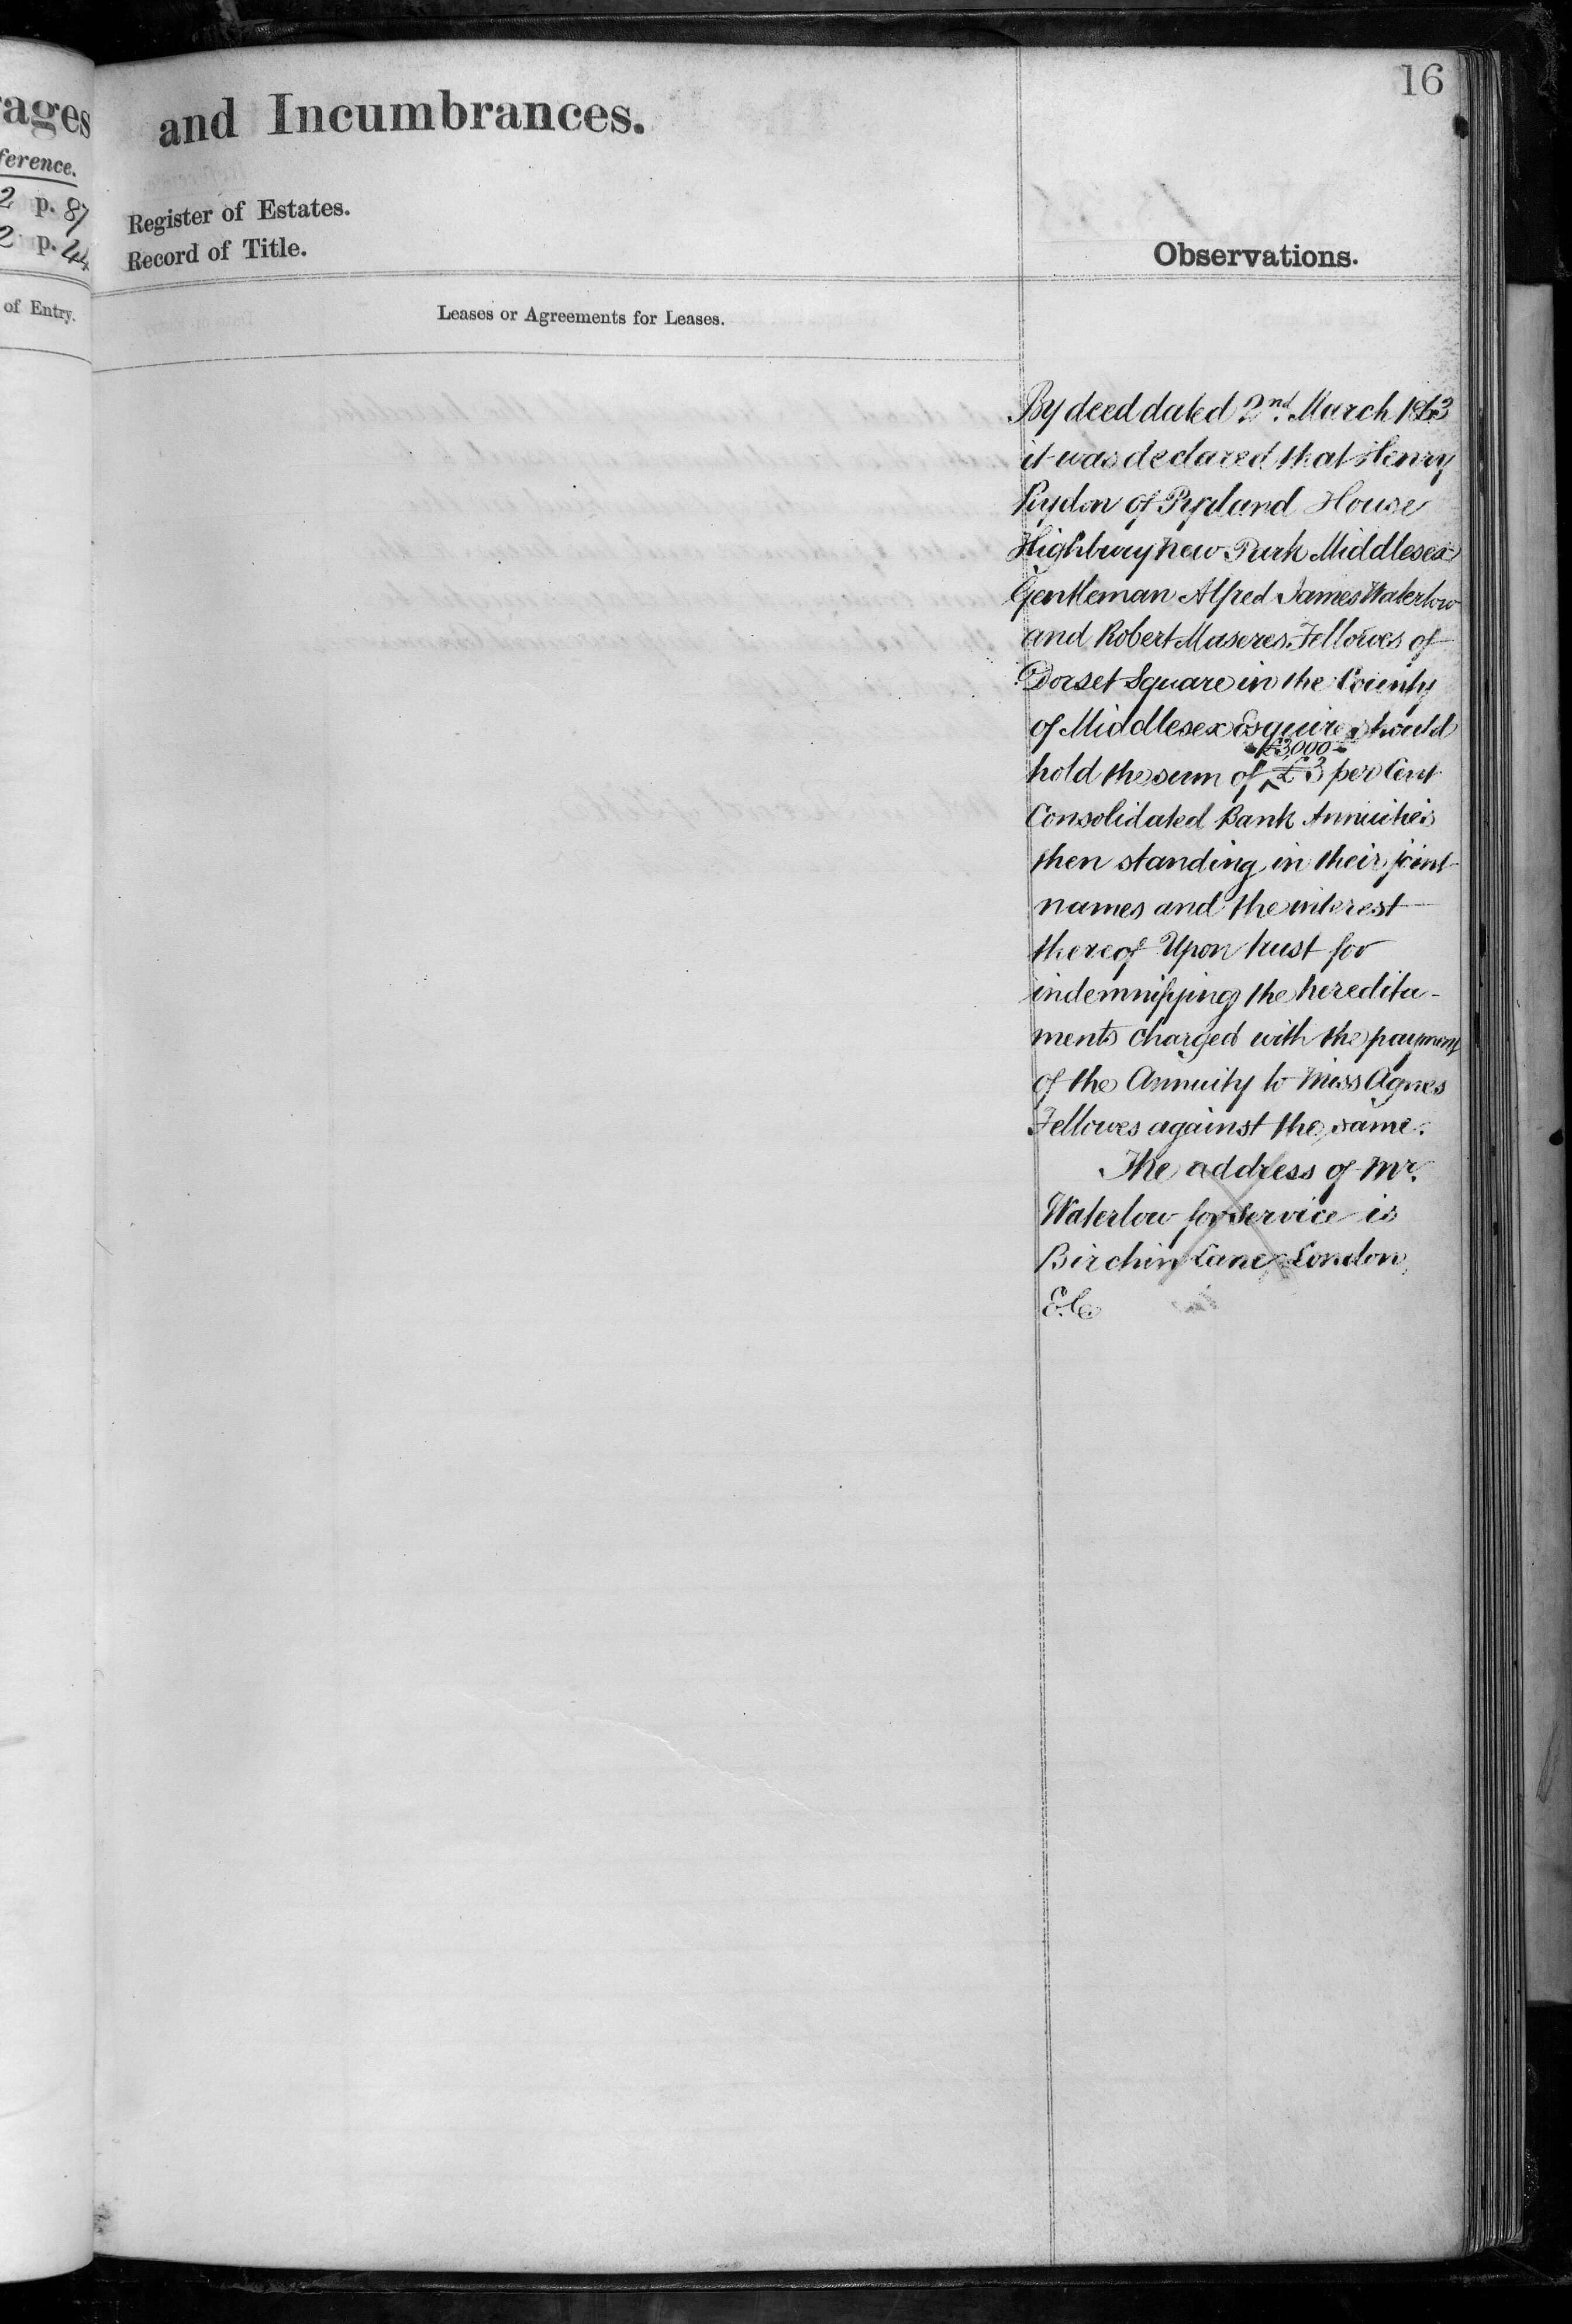 ages
ference.
2 p. 87
2 p. 44
of Entry.
16
and Incumbrances.
Register of Estates.
Record of Title.
Observations.
Leases or Agreements for Leases.
By deed dated 2nd. March 1863
it was declared that Henry
Rydon of Pyrland House
Highbury New Park Middlesex
Gentleman Alfred James Waterlow
and Robert Maseres Fellowes of
Dorset Square in the County
of Middlesex Esquires should
£3,000
hold the sum of £3 per Cent
Consolidated Bank Annuities
then standing in their joint
names and the interest
thereof Upon trust for
indemnifying the heredita-
ments charged with the payment
of the Annuity to Miss Agnes
Fellowes against the same.
The address of Mr.
Waterlow for service is
Birchin Lane London
E.C.